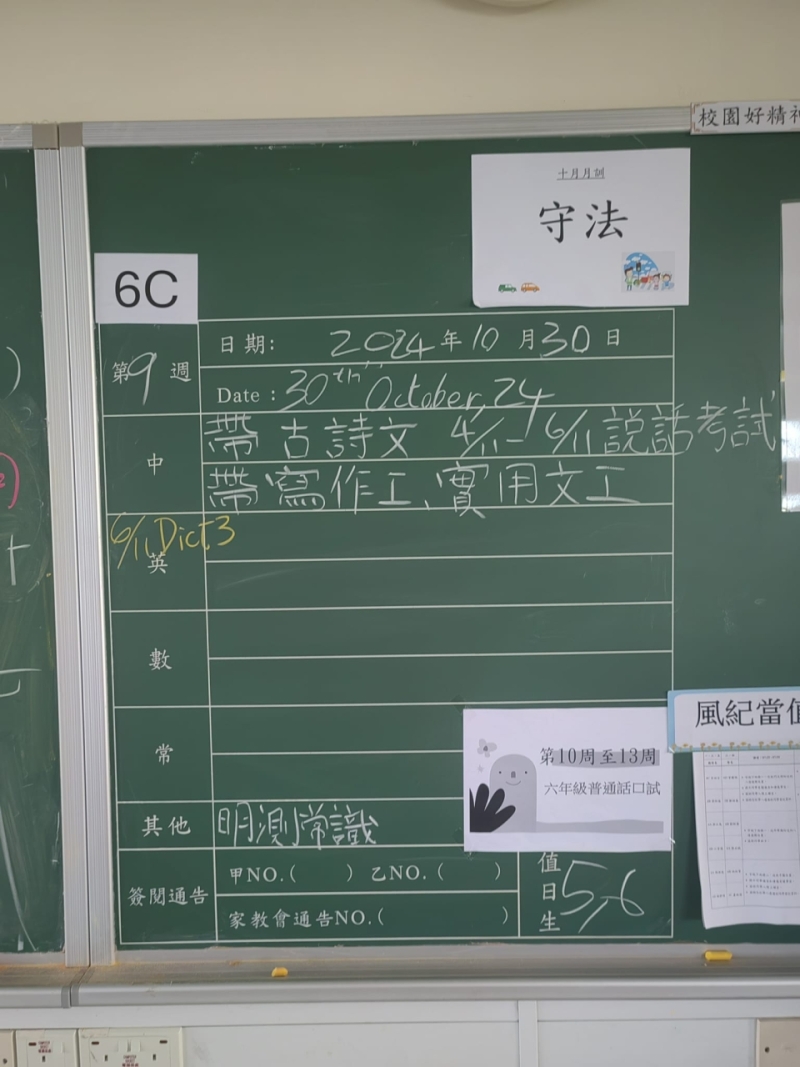 校園好精神
十月月訓
守法
6C
第9週
日期: 2024年10月30日
Date : 30th October, 24
中
帶古詩文 4/11-6/11說話考試
帶寫作工、實用文工
6/11 Dict.3
英
數
常
第10周至13周
六年級普通話口試
風紀當值
其他
明測常識
簽閱通告
甲NO.( ) 乙NO.( )
家教會通告NO.( )
值日生
5,6